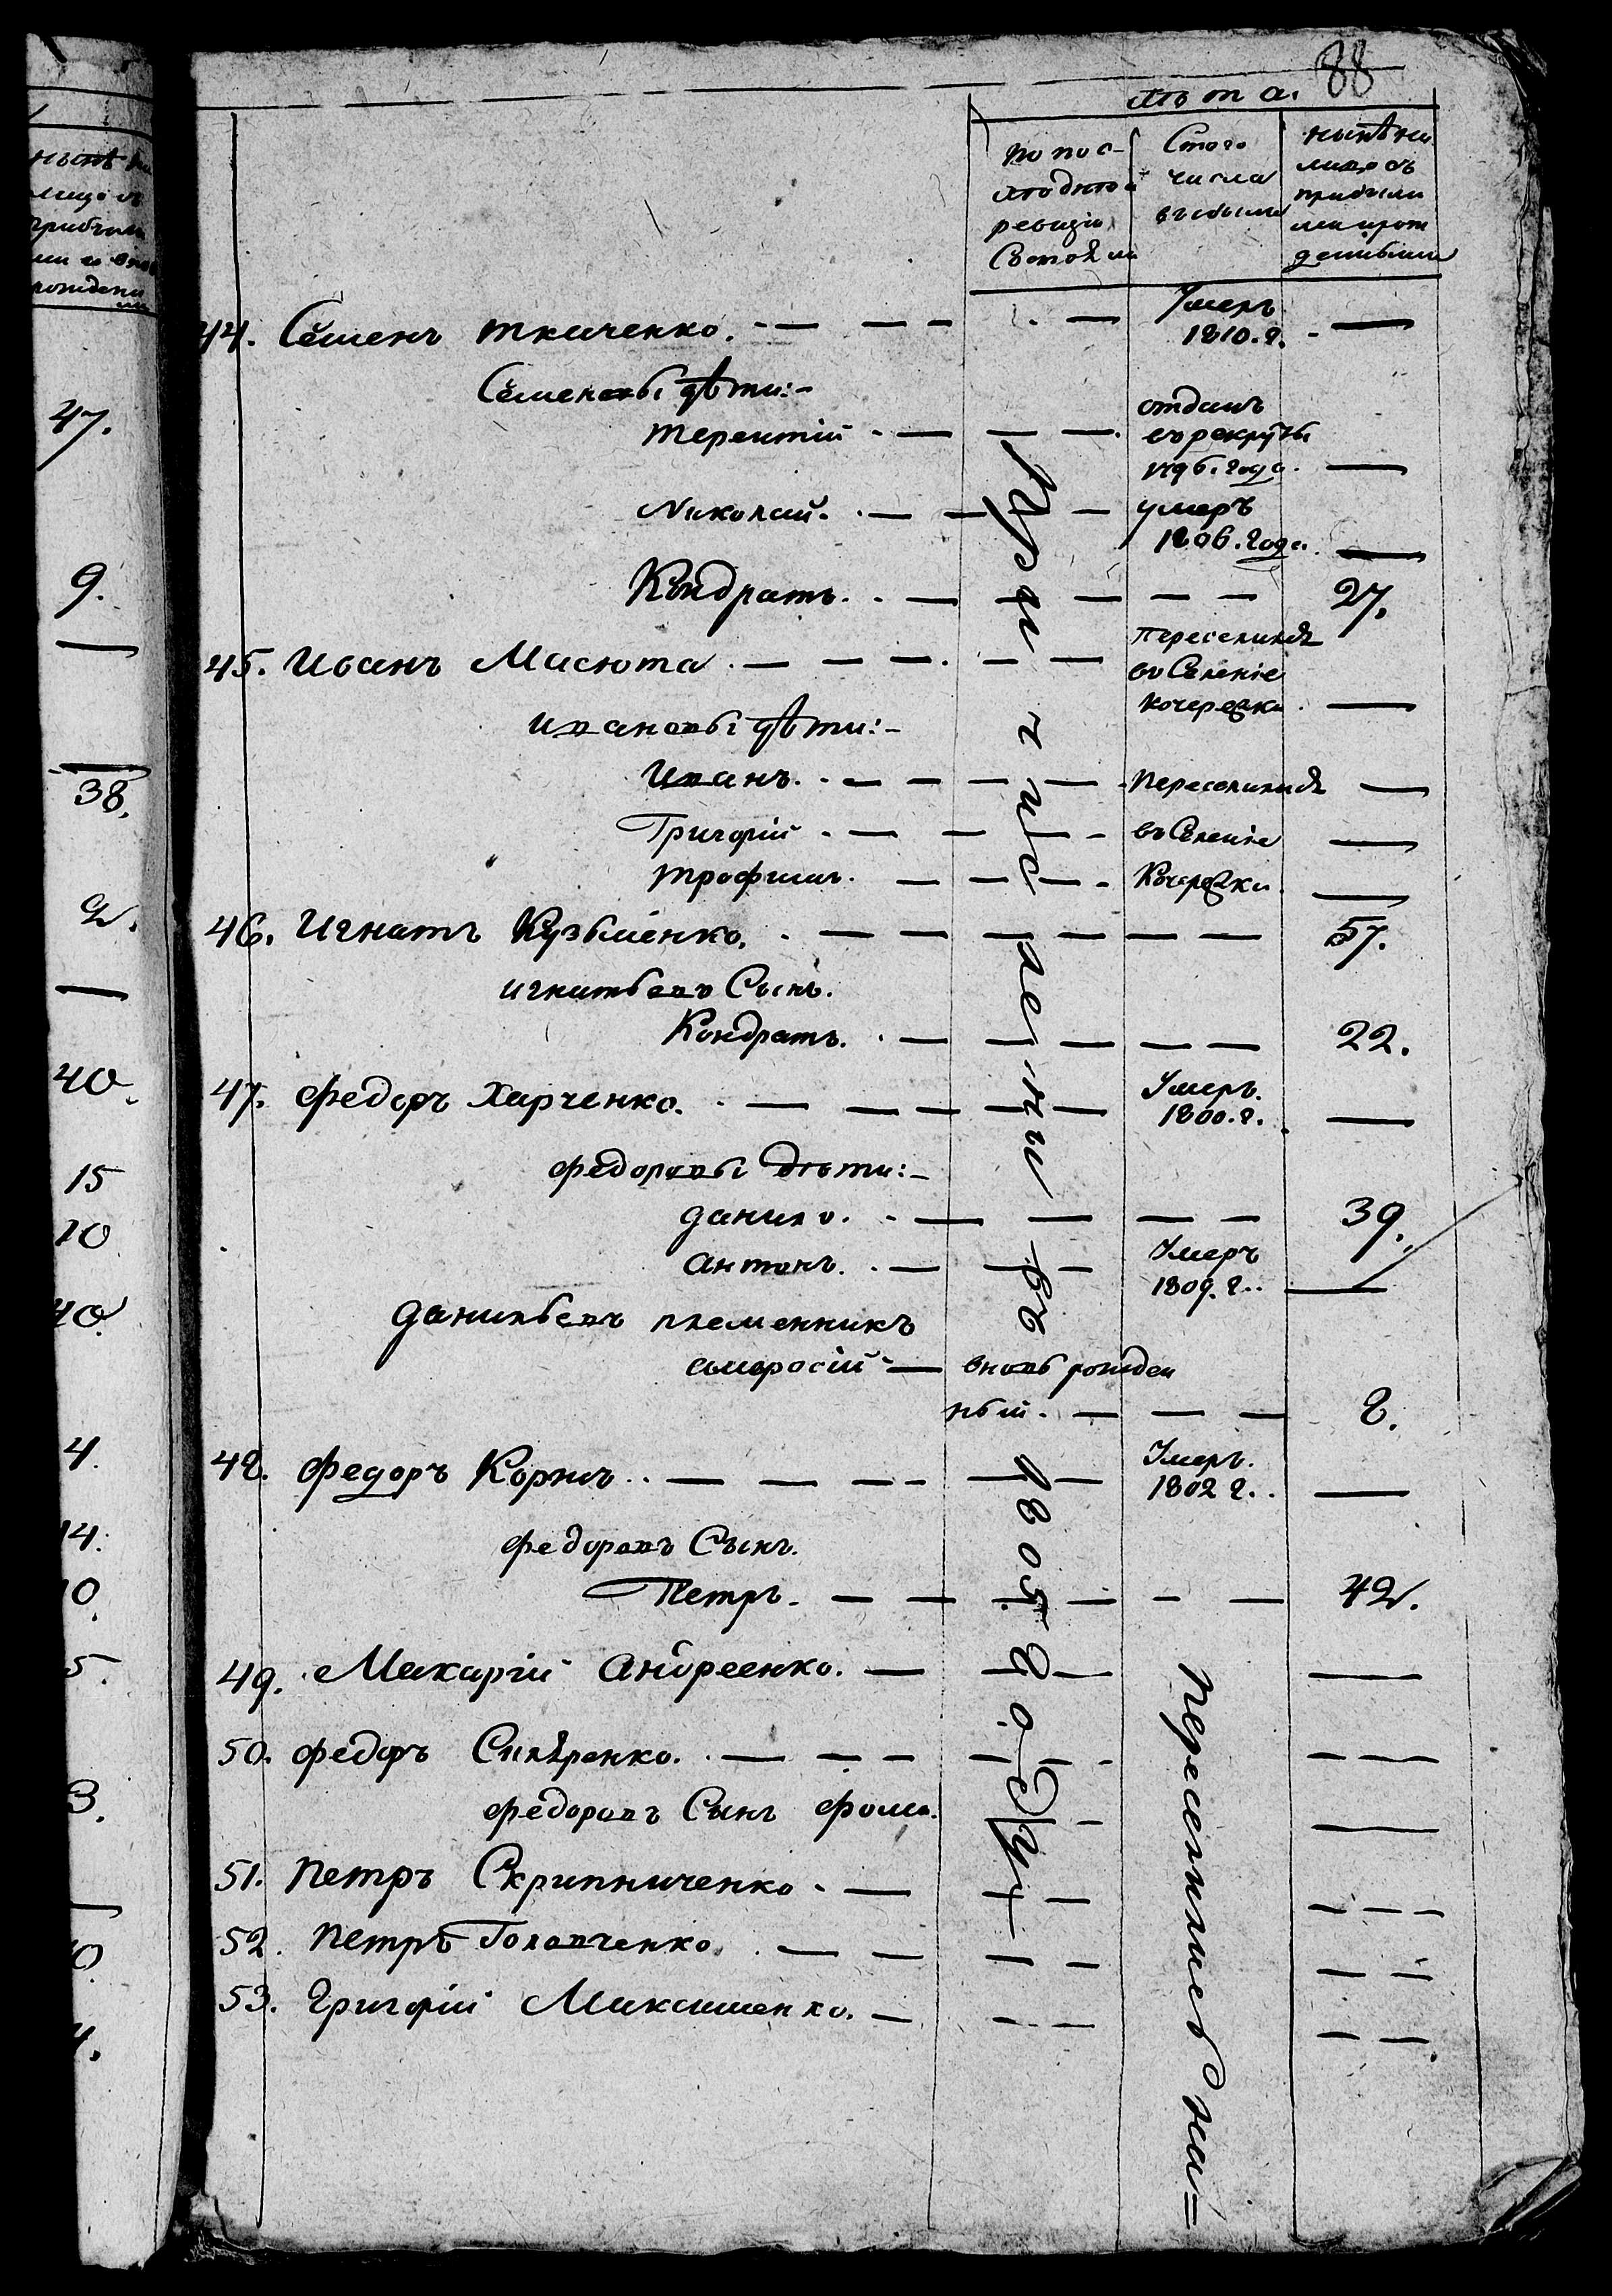 88
лѣта.
по пос-
лѣдней
ревизіи
Состояли
Стого
числа
выбыло
нынѣ на
лицо съ
прибыли
ми и рож
денными
44. Семенъ Ткаченко. Умеръ
1810. г.
Семеновы дѣти:-
Терентій отданъ
въ рекруты
1796. года.
Николай. умеръ
1806. года.
Кондратъ. 27.
45. Иванъ Масюта Переселился
въ Селеніе
Кочережки
Ивановы дѣти:-
Иванъ. Переселился
Григорій въ Селеніе
Трофимъ. Кочережки
46. Игнатъ Кузьменко. 57.
Игнатьевъ Сынъ.
Кондратъ. 22.
47. Федоръ Харченко. Умеръ.
1800. г.
Федоровы дѣти:-
Данило. 39.
Антонъ. Умеръ
1809. г.
Данильевъ племенникъ
Амвросій вновь рожден
ный. 8.
48. Федоръ Коржъ Умеръ.
1802 г.
Федоровъ Сынъ.
Петръ. 42.
49. Макарій Андреенко.
50. Федоръ Скляренко.
Федоровъ Сынъ Фома.
51. Петръ Скрипниченко
52. Петръ Головченко
53. Григорій Максименко.
Причислены въ
1805 году
Переселились на=
47.
9.
38.
2.
40.
15
10
40
4
14.
0.
5.
3.
0.
4.